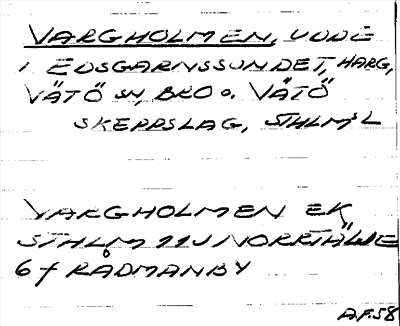 VARGHOLMEN, UDDE
I EDSGARNSSUNDET, HARG,
VÄTÖ SN, BRO o. VÄTÖ
SKEPPSLAG, STHLM:L
VARGHOLMEN EK
STHLM 11J NORRTÄLJE
6 f RÅDMANBY
A.F.58